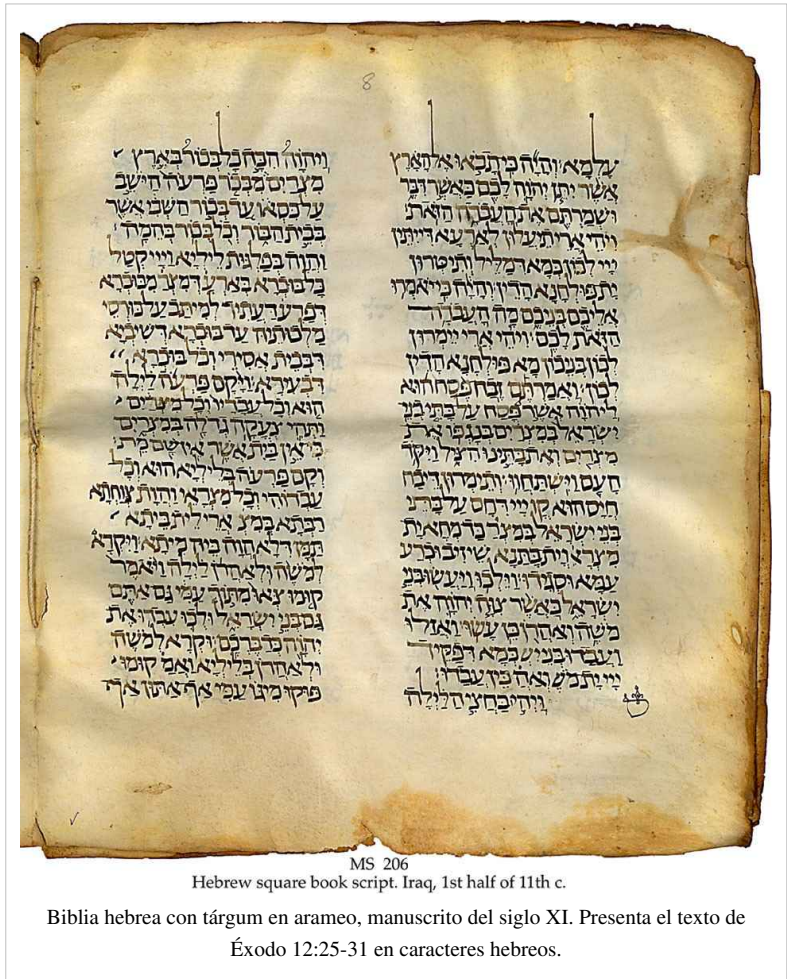 8
עלמא והיה כי תבאו אל הארץ
אשר יתן יהוה לכם כאשר דבר
ושמרתם את העבדה הזאת
ויהי ארי תיעלון לארעא דייתין
ייי לכון כמא דמליל ותיטרון
ית פולחנא הדין והיה כי יאמרו
אליכם בניכם מה העבדה
הזאת לכם ויהי ארי יימרון
לכון בניכון מא פולחנא הדין
לכון ואמרתם זבח פסח הוא
ליהוה אשר פסח על בתי בני
ישראל במצרים בנגפו את
מצרים ואת בתינו הציל ויקד
העם וישתחוו ותימרון דיבח
חיס הוא קדם ייי דחס על בתי
בני ישראל במצר כד מחא ית
מצראי וית בתנא שיזיב וכרע
עמא וסגידו וילכו ויעשו בני
ישראל כאשר צוה יהוה את
משה ואהרן כן עשו ואזלו
ועבדו בני יש כמא דפקיד
ייי ית מש ואה כין עבדו
ויהי בחצי הלילה
ויהוה הכה כל בכור בארץ
מצרים מבכר פרעה הישב
על כסאו עד בכור השבי אשר
בבית הבור וכל בכור בהמה
והוה בפלגות ליליא וייי קטל
כל בוכרא בארעא דמצר מבוכרא
דפרעה דעתיד למיתב על כורסי
מלכותיה עד בוכרא דשיביא
דבבית אסירי וכל בוכרא
דבעירא ויקם פרעה לילה
הוא וכל עבדיו וכל מצרים
ותהי צעקה גדלה במצרים
כי אין בית אשר אין שם מת
וקם פרעה בליליא הוא וכל
עבדוהי וכל מצראי והות צוחתא
רבתא במצ ארי לית ביתא
תמן דלא הוה ביה מיתא ויקרא
למשה ולאהרן לילה ויאמר
קומו צאו מתוך עמי גם אתם
גם בני ישראל ולכו עבדו את
יהוה כדברכם וקרא למשה
ולאהרן בליליא ואמ קומו
פוקו מיגו עמי אף אתון אף
MS 206
Hebrew square book script. Iraq, 1st half of 11th c.
Biblia hebrea con tárgum en arameo, manuscrito del siglo XI. Presenta el texto de
Éxodo 12:25-31 en caracteres hebreos.